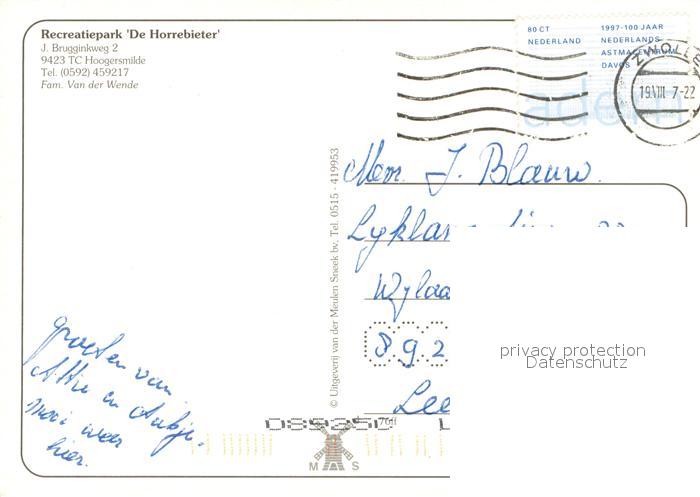 Recreatiepark 'De Horrebieter'
J. Brugginkweg 2
9423 TC Hoogersmilde
Tel. (0592) 459217
Fam. Van der Wende
80 CT
NEDERLAND
1997-100 JAAR
NEDERLANDS
ASTMACENTRUM
DAVOS
adem
ZWOLLE
19.VIII 7-22
© Uitgeverij van der Meulen Sneek bv. Tel. 0515 - 419953
Mevr. J. Blauw.
Lyklam
Wylaa
8 9 2
Lee
groeten van
Attie en Aukje.
mooi weer
hier.
privacy protection
Datenschutz
M S